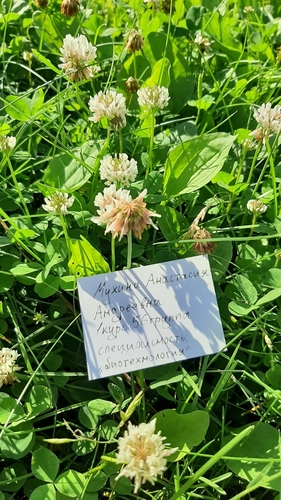 Мухина Анастасия
Андреевна
1курс 56группа
специальность:
"биотехнология"